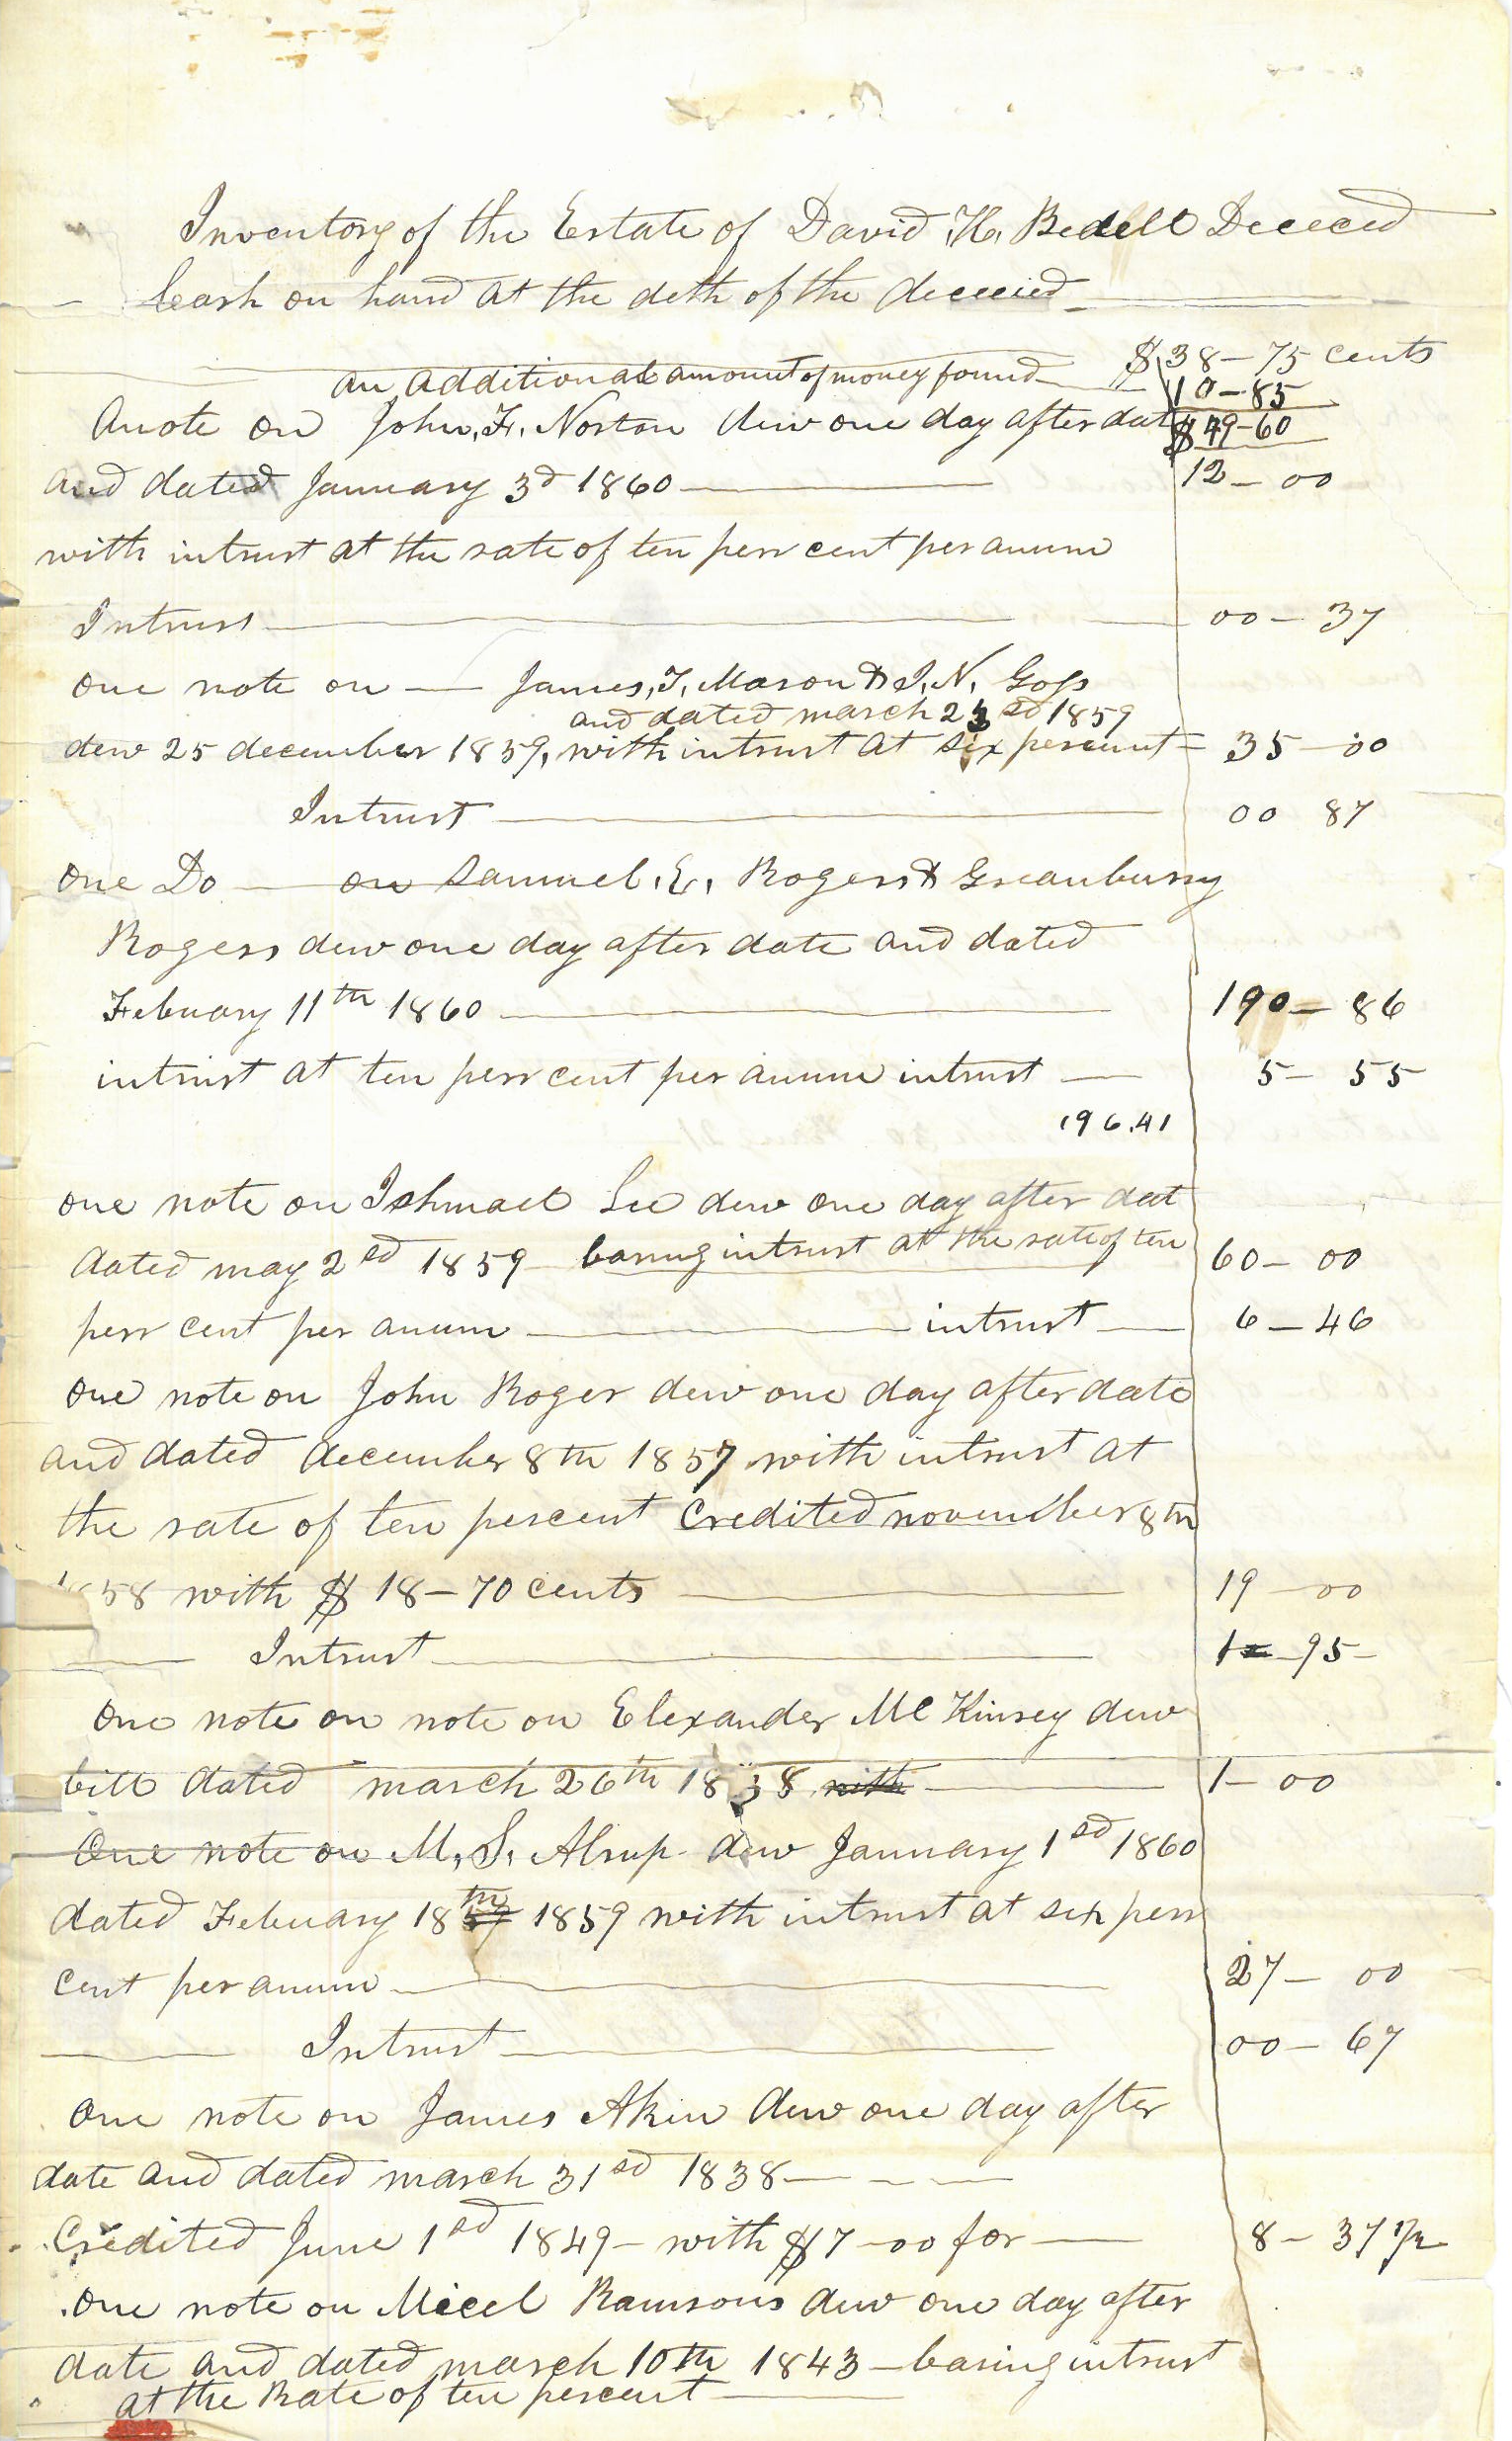 Inventory of the Estate of David, H, Bedell Dececed
Cash on hand at the deth of the dececied
$38-75 cents
an additional amount of money found 10-85
$49-60
Anote on John, F, Norton dew one day after dat
and dated January 3d 1860 12-00
with intrust at the rate of ten perr cent per anum
Intrust 00-37
one note on James, T, Mason & I, N, Goss
and dated march 23sd 1859
dew 25 december 1859, with intrust at six percent = 35-00
Intrust 00 87
one Do on Samuel, E, Rogers & Greanburry
Rogers dew one day after date and dated
Febuary 11th 1860 190-86
intrust at ten perr cent per anum intrust 5-55
196.41
one note on Ishmael Lee dew one day after dat
dated may 2sd 1859 baring intrust at the rate of ten 60-00
perr cent per anum intrust 6-46
one note on John Roger dew one day after date
and dated december 8th 1857 with intrust at
the rate of ten percent Credited november 8th
1858 with $18-70 cents 19-00
Intrust 1-95
One note on note on Elexander McKinsey dew
bill dated march 26th 1838 with 1-00
One note on M, S, Alsup dew January 1sd 1860
dated Febuary 18th 1859 with intrust at six perr
cent per anum 27-00
Intrust 00-67
one note on James Akin dew one day after
date and dated march 31sd 1838
Credited June 1sd 1849 - with $7-00 for 8-37 1/2
one note on Micel Ramsons dew one day after
date and dated march 10th 1843 - baring intrust
at the Rate of ten percent